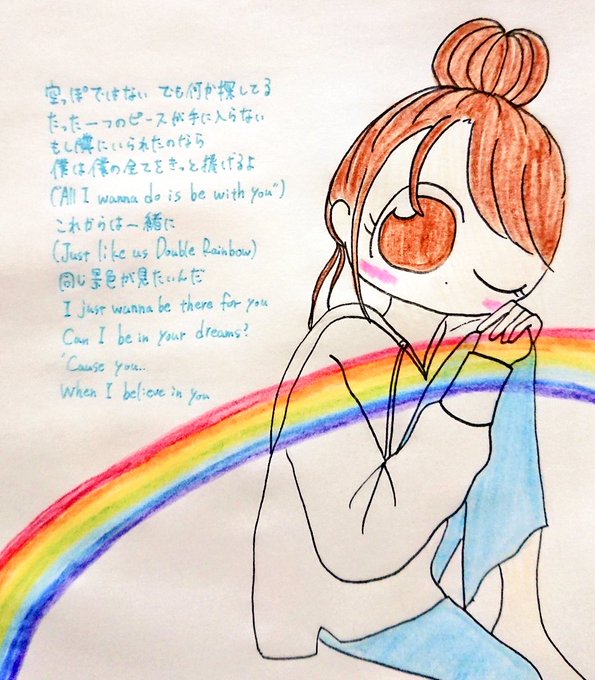 空っぽではない でも何か探してる
たった一つのピースが手に入らない
もし隣にいられたのなら
僕は僕の全てをきっと捧げるよ
("All I wanna do is be with you")
これからは一緒に
(Just like us Double Rainbow)
同じ景色が見たいんだ
I just wanna be there for you
Can I be in your dreams?
'Cause you..
When I believe in you